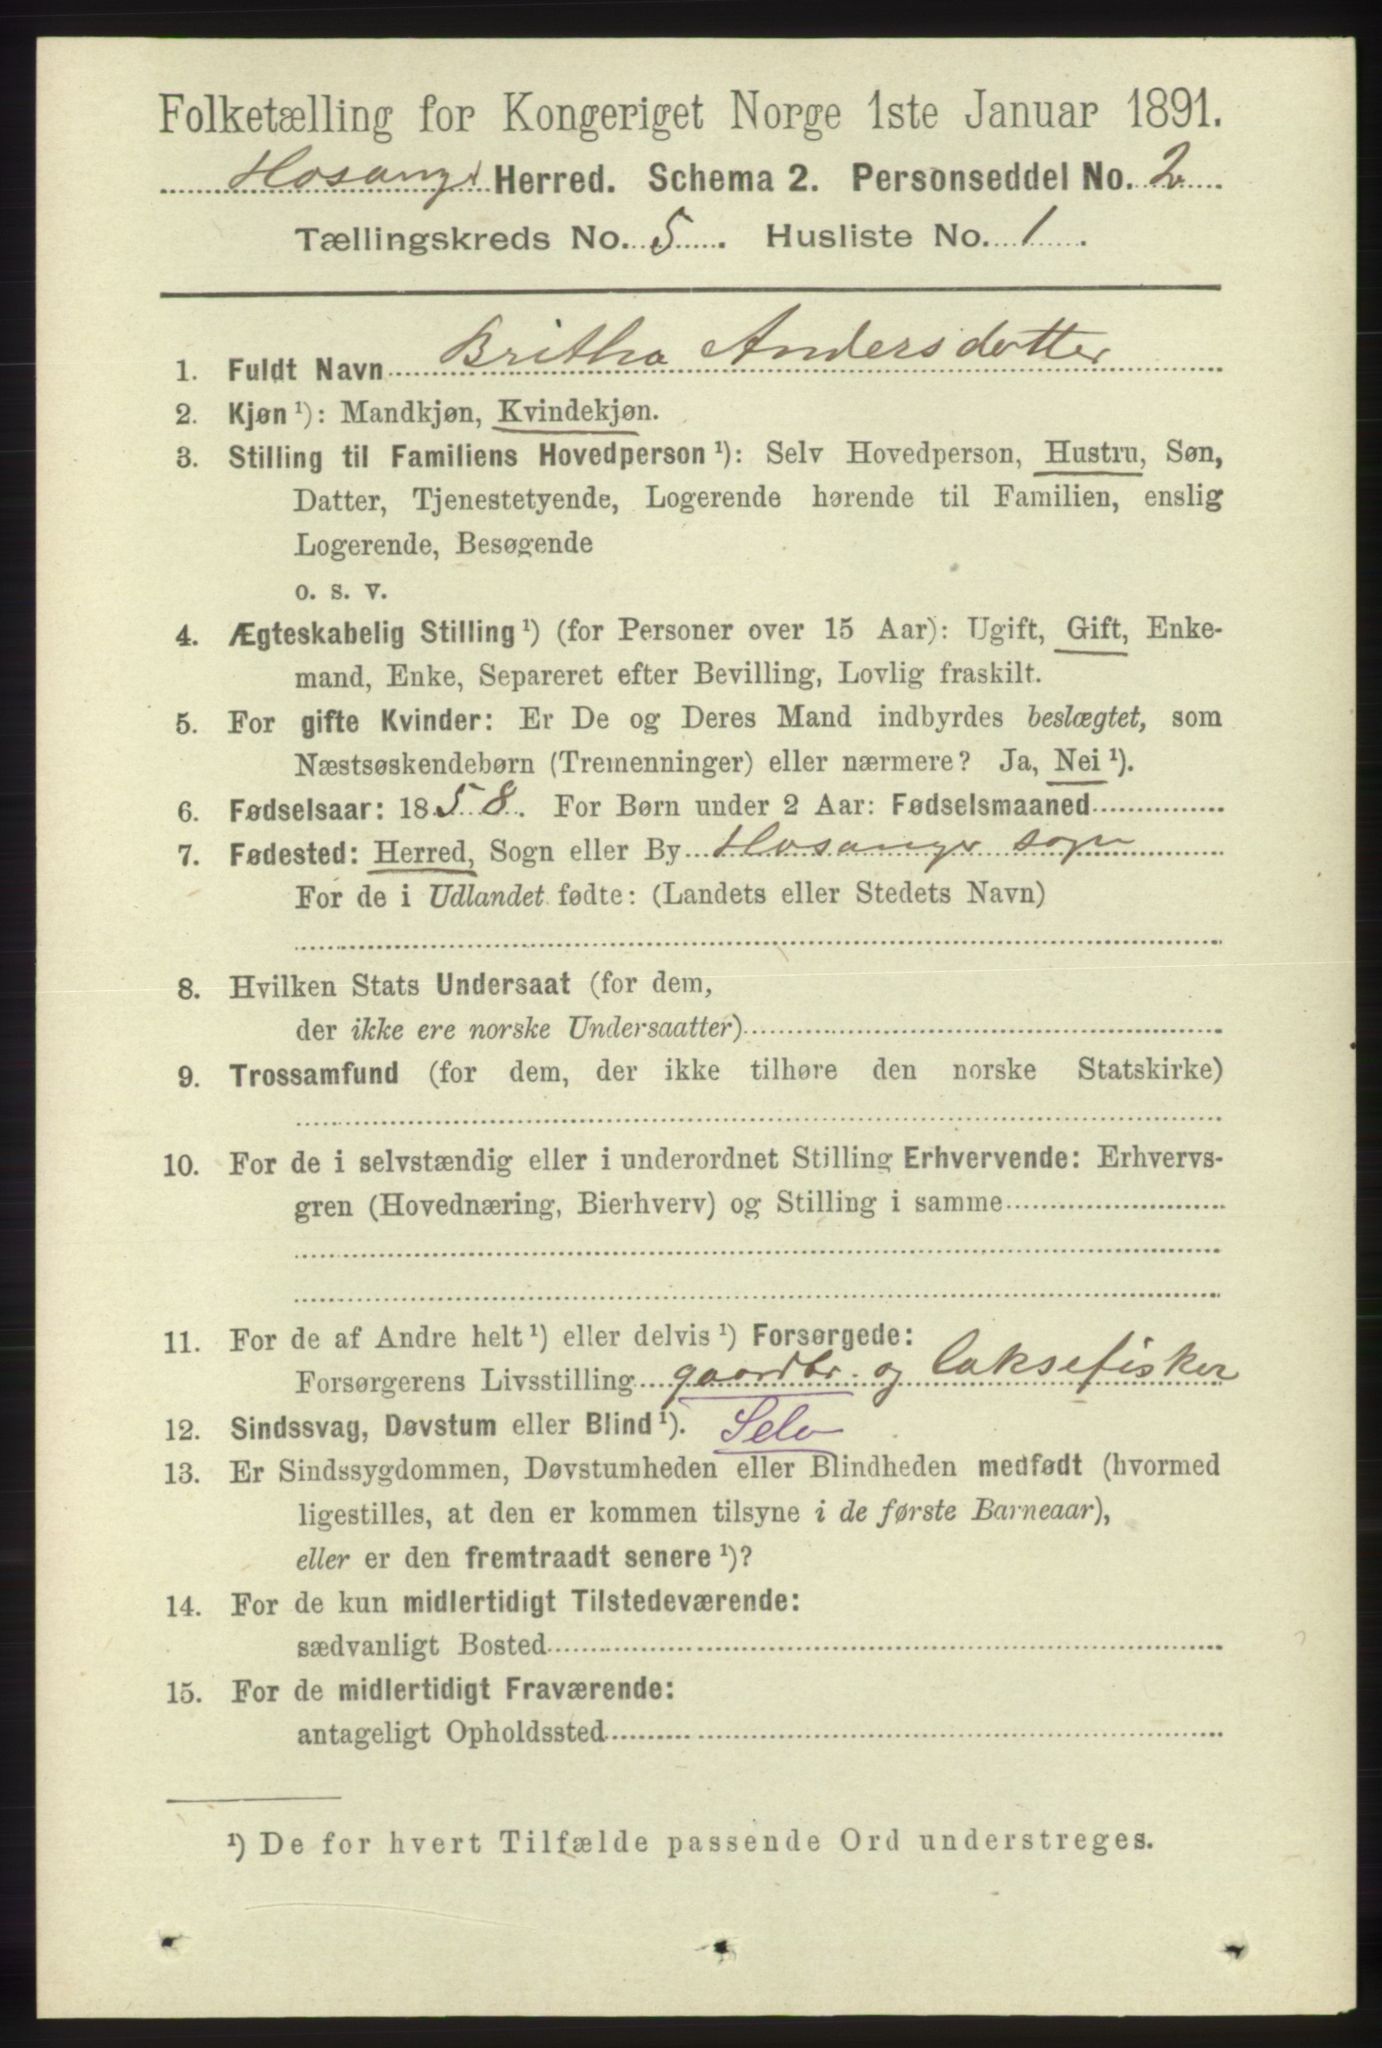 Folketælling for Kongeriget Norge 1ste Januar 1891.
Hosanger Herred. Schema 2. Personseddel No. 2
Tællingskreds No. 5. Husliste No. 1.
1. Fuldt Navn Britha Andersdotter
2. Kjøn ¹): Mandkjøn, Kvindekjøn.
3. Stilling til Familiens Hovedperson ¹): Selv Hovedperson, Hustru, Søn,
Datter, Tjenestetyende, Logerende hørende til Familien, enslig
Logerende, Besøgende
o. s. v.
4. Ægteskabelig Stilling ¹) (for Personer over 15 Aar): Ugift, Gift, Enke-
mand, Enke, Separeret efter Bevilling, Lovlig fraskilt.
5. For gifte Kvinder: Er De og Deres Mand indbyrdes beslægtet, som
Næstsøskendebørn (Tremenninger) eller nærmere? Ja, Nei ¹).
6. Fødselsaar: 1858. For Børn under 2 Aar: Fødselsmaaned
7. Fødested: Herred, Sogn eller By Hosanger sogn
For de i Udlandet fødte: (Landets eller Stedets Navn)
8. Hvilken Stats Undersaat (for dem,
der ikke ere norske Undersaatter)
9. Trossamfund (for dem, der ikke tilhøre den norske Statskirke)
10. For de i selvstændig eller i underordnet Stilling Erhvervende: Erhvervs-
gren (Hovednæring, Bierhverv) og Stilling i samme
11. For de af Andre helt ¹) eller delvis ¹) Forsørgede:
Forsørgerens Livsstilling gaardbr. og laksefisker
12. Sindssvag, Døvstum eller Blind ¹). Selv
13. Er Sindssygdommen, Døvstumheden eller Blindheden medfødt (hvormed
ligestilles, at den er kommen tilsyne i de første Barneaar),
eller er den fremtraadt senere ¹)?
14. For de kun midlertidigt Tilstedeværende:
sædvanligt Bosted
15. For de midlertidigt Fraværende:
antageligt Opholdssted
¹) De for hvert Tilfælde passende Ord understreges.